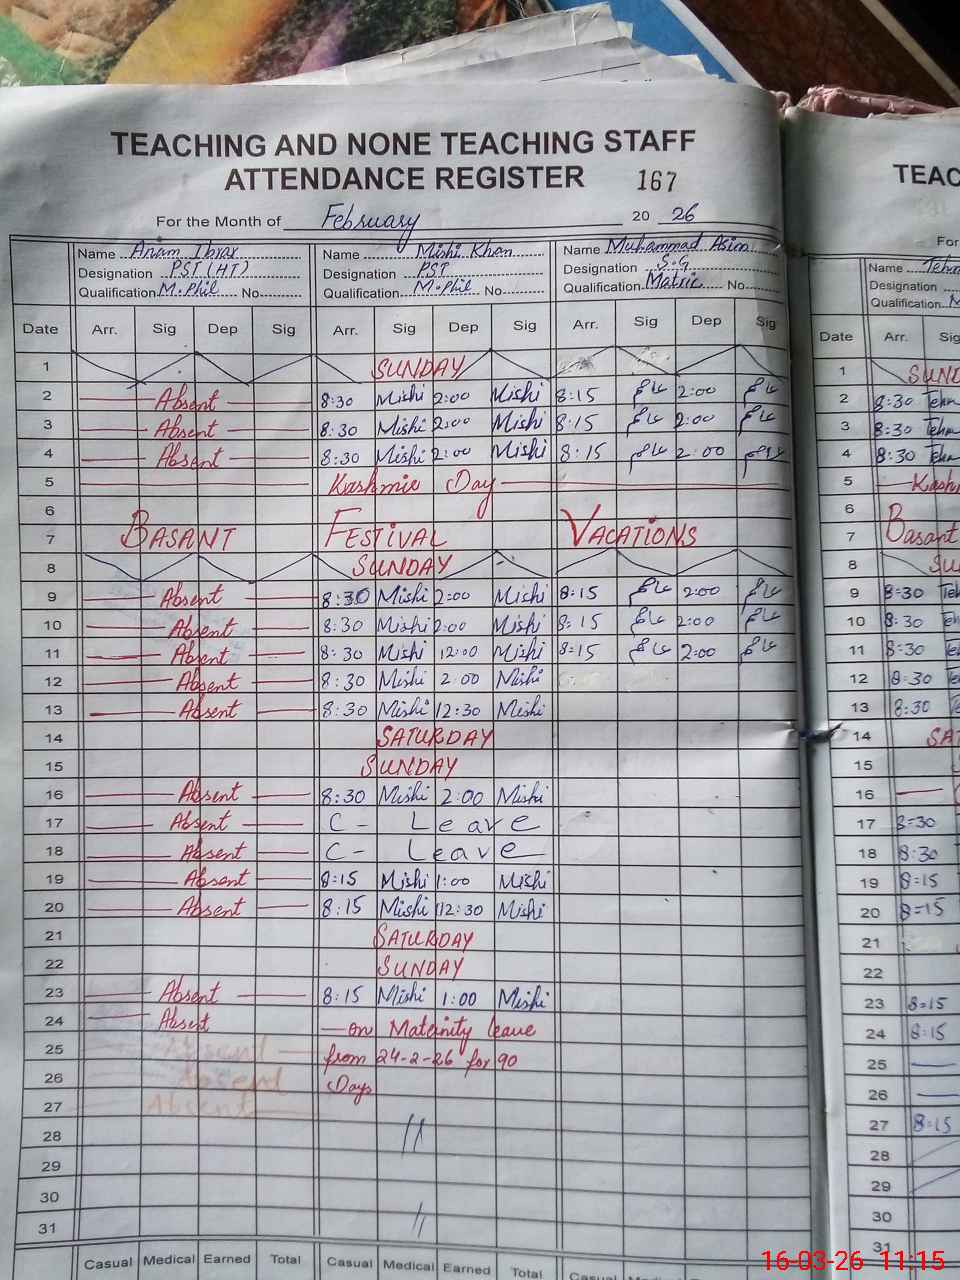 TEACHING AND NONE TEACHING STAFF
ATTENDANCE REGISTER 167
For the Month of February 20 26
Name Anam Ibrar Name Mishi Khan Name Muhammad Asim
Designation PST (HT) Designation PST Designation S.G
Qualification M.Phil No Qualification M.Phil No Qualification Matric No
Date Arr. Sig Dep Sig Arr. Sig Dep Sig Arr. Sig Dep Sig
1 SUNDAY
2 Absent 8:30 Mishi 2:00 Mishi 8:15 2:00
3 Absent 8:30 Mishi 2:00 Mishi 8:15 2:00
4 Absent 8:30 Mishi 2:00 Mishi 8:15 2:00
5 Kashmir Day
6
7 BASANT FESTIVAL VACATIONS
8 SUNDAY
9 Absent 8:30 Mishi 2:00 Mishi 8:15 2:00
10 Absent 8:30 Mishi 2:00 Mishi 8:15 2:00
11 Absent 8:30 Mishi 12:00 Mishi 8:15 2:00
12 Absent 8:30 Mishi 2:00 Mishi
13 Absent 8:30 Mishi 12:30 Mishi
14 SATURDAY
15 SUNDAY
16 Absent 8:30 Mishi 2:00 Mishi
17 Absent C- Leave
18 Absent C- Leave
19 Absent 8:15 Mishi 1:00 Mishi
20 Absent 8:15 Mishi 12:30 Mishi
21 SATURDAY
22 SUNDAY
23 Absent 8:15 Mishi 1:00 Mishi
24 Absent on Maternity leave
25 Absent from 24-2-26 for 90
26 Absent Days
27 Absent
28
29
30
31
Casual Medical Earned Total Casual Medical Earned Total Casual
TEAC
For
Name
Designation
Qualification M
Date Arr. Sig
1 SUND
2 8:30
3 8:30
4 8:30
5 Kash
6
7 Basant
8 SU
9 8:30
10 8:30
11 8:30
12 8:30
13 8:30
14 SAT
15
16
17 8:30
18 8:30
19 8:15
20 8:15
21
22
23 8:15
24 8:15
25
26
27 8:15
28
29
30
31
16-03-26 11:15